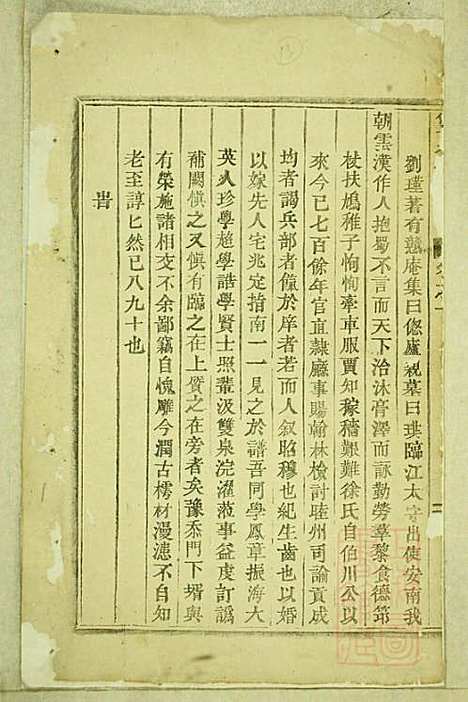 劉瑾著有䕫庵集曰偲廬視墓曰珙臨江太守出使安南我
朝雲漢作人抱蜀不言而天下治沐膏澤而詠勤勞羣黎食德筇
杖扶鳩稚子恂恂牽車服賈知稼穡艱難徐氏自伯川公以
來今已七百餘年官直隸廳事賜翰林檢討睦州司諭貢成
均者謁兵部者僮於庠者若而人叙昭穆也紀生齒也以婚
以嫁先人宅兆定指南一一見之於譜吾同學鳳章振海大
英人珍學趨學誥學賢士照輩汲雙泉浣濯蒞事益虔訂譌
補闕慎之又慎有臨之在上質之在旁者矣豫忝門下壻與
有榮施諸相交不余鄙竊自愧雕今潤古樗材漫漶不自知
老至諄匕然已八九十也
旹